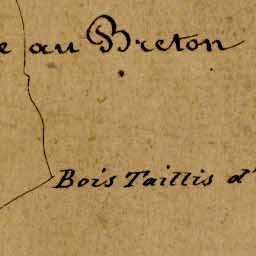 e au Breton
Bois Taillis d'